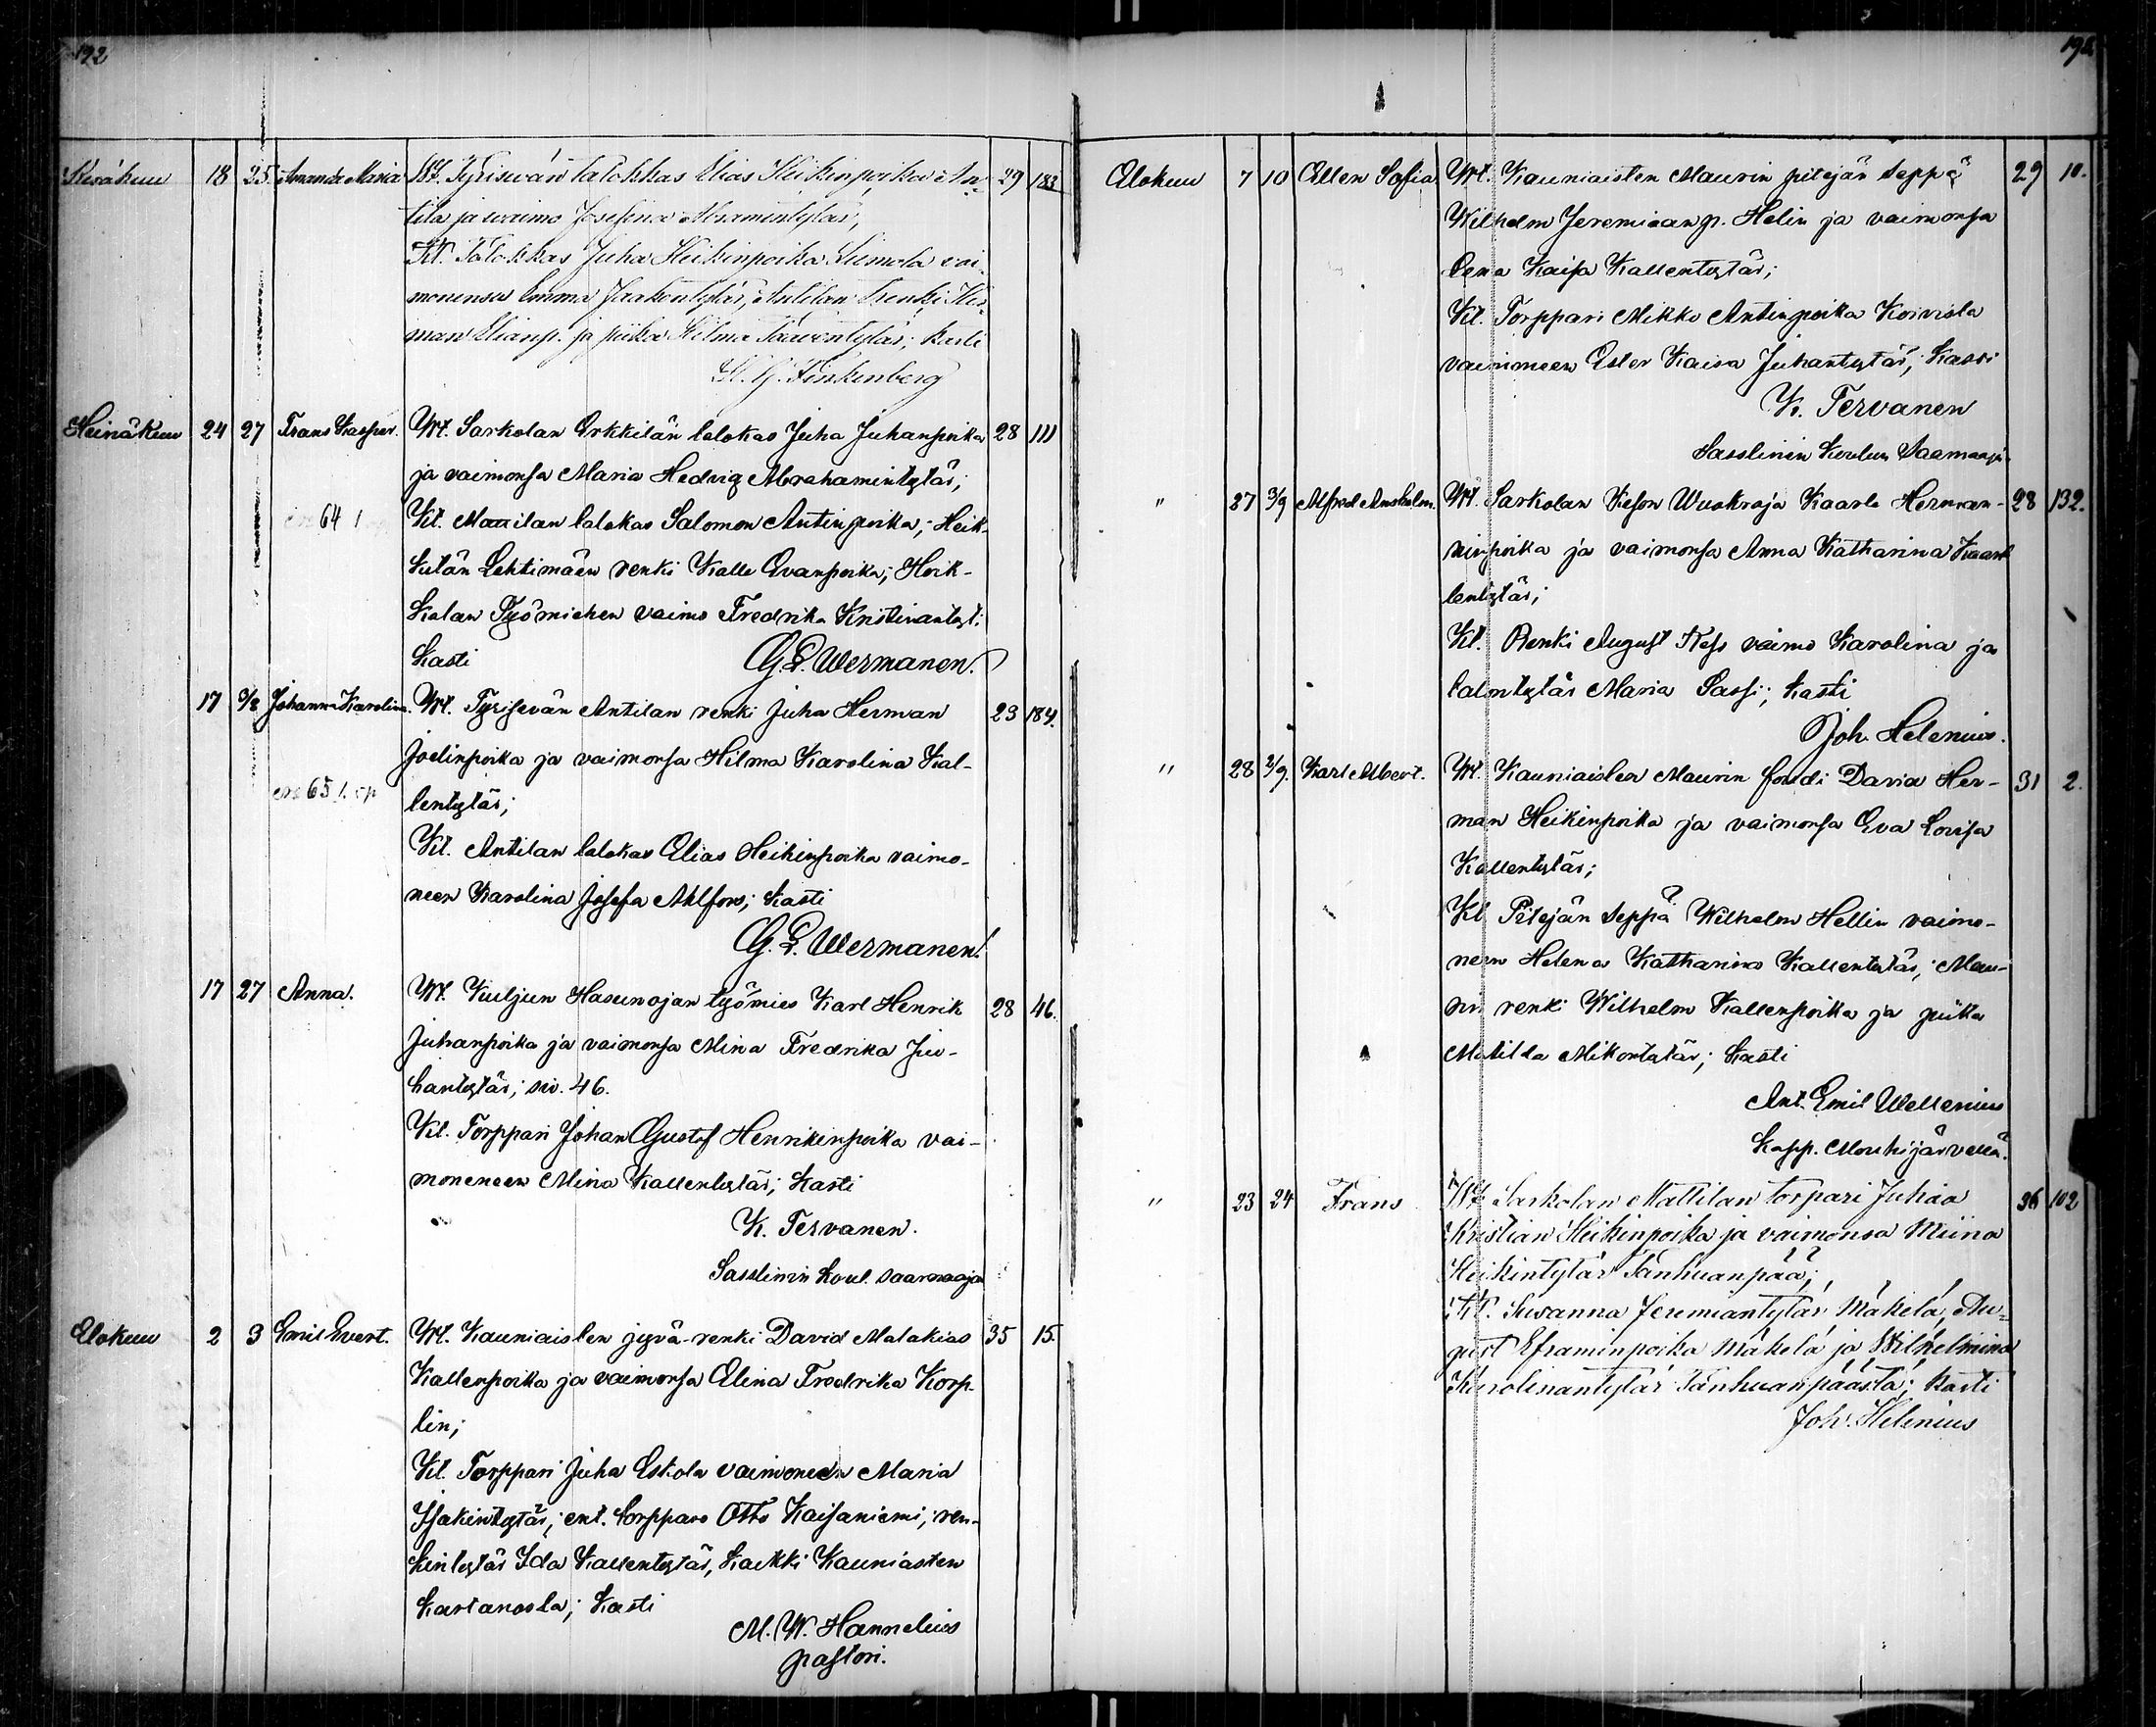 192
Kesäkuu 18 25 Amanda Maria Wt. Tyrisevän talokkas Elias Heikinpoika An- 29 183
tila ja waimo Josefina Abramintytär,
Kt. Talokkas Juha Heikinpoika Liimola vai-
monensa Emma Jaakontytär, Antilan renki Her-
man Elianp. ja piika Hilma Taavintytär; kasti
K. G. Finkenberg
Heinäkuu 24 27 Frans Kasper. Wt. Sarkolan Erkkilän talokas Juha Juhanpoika 28 111
ja vaimonsa Maria Hedvig Abrahamintytär;
64 Kt. Mattilan talokas Salomon Antinpoika; Heik-
kilän Lehtimäen renki Kalle Evanpoika; Hoik-
kalan Työmiehen vaimo Fredrika Kristinantyt.
kasti G. L. Wermanen.
17 3/8 Johanna Karolina. Wt. Tyrisevän Antilan renki Juha Herman 29 184.
Joelinpoika ja vaimonsa Hilma Karolina Kal-
65 lentytär;
Kt. Antilan talokas Elias Heikinpoika vaimo-
neen Karolina Josefa Ahlfors; kasti
G. L. Wermanen.
17 27 Anna. Wt. Kuljun Hasunojan työmies Karl Henrik 28 46.
Juhanpoika ja vaimonsa Mina Fredrika Ju-
hantytär; siv. 46.
Kt. Torppari Johan Gustof Henrikinpoika vai-
moneneen Mina Kallentytär; kasti
K. Tervanen.
Sasslinin koul. saarnaaja
Elokuu 2 3 Emil Evert. Wt. Kauniaisten jyvä-renki David Malakias 35 15.
Kallenpoika ja vaimonsa Elina Fredrika Korp-
lin;
Kt. Torppari Juha Eskola vaimoneen Maria
Isakintytär; ent. torppari Otto Kaisaniemi; ren-
kintytär Ida Kallentytär, kaikki Kauniasten
kartanosta; kasti
M. W. Hannelius
pastori.
192
Elokuu 7 10 Ellen Sofia Wt. Kauniaisten Maurin pitejän seppä 29 10.
Wilhelm Jeremiaanp. Helin ja vaimonsa
Lena Kaisa Kallentytär;
Kt. Torppari Mikko Antinpoika Koivisto
vaimoneen Ester Kaisa Juhantytär; kasti
K. Tervanen
Sasslinin koulun Saarnaaja.
" 27 3/9 Alfred Anshelm. Wt. Sarkolan Keson Wuokraja Kaarlo Herman- 28 132.
ninpoika ja vaimonsa Anna Katharina Kaar-
lentytär;
Kt. Renki August Keso vaimo Karolina ja
talontytär Maria Sassi; kasti
Joh. Helenius.
" 28 2/9. Karl Albert. Wt. Kauniaisten Maurin foudi David Her- 31 2.
man Heikinpoika ja vaimonsa Eva Lovisa
Kallentytär;
Kt. Pitejän seppä Wilhelm Hellin vaimo-
neen Helena Katharina Kallentytär; Mau-
rin renki Wilhelm Kallenpoika ja piika
Matilda Mikontytär; kasti
Ant. Emil Wellenius
Kapp. Mouhijärvellä.
" 23 24 Frans Wt. Sarkolan Mattilan torpari Juhaa 36 102
Kristian Heikinpoika ja vaimonsa Miina
Heikintytär Tanhuanpää;
Kt. Susanna Jeremiantytär Mäkelä, Au-
gust Eframinpoika Mäkelä ja Wilhelmina
Karolinantytär Tanhuanpäästä; kasti
Joh. Helenius